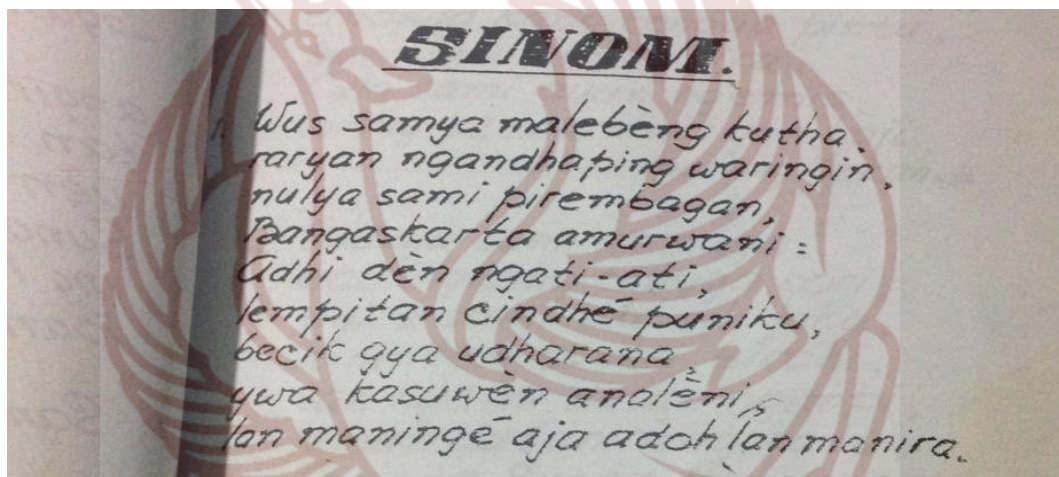 SINOM.
1. Wus samya malebèng kutha,
raryan ngandhaping waringin,
nulya sami pirembagan,
Bangaskarta amurwani:
Adhi dèn ngati-ati,
lempitan cindhé puniku,
becik gya udharana,
ywa kasuwèn analèni,
lan maningé aja adoh lan manira.